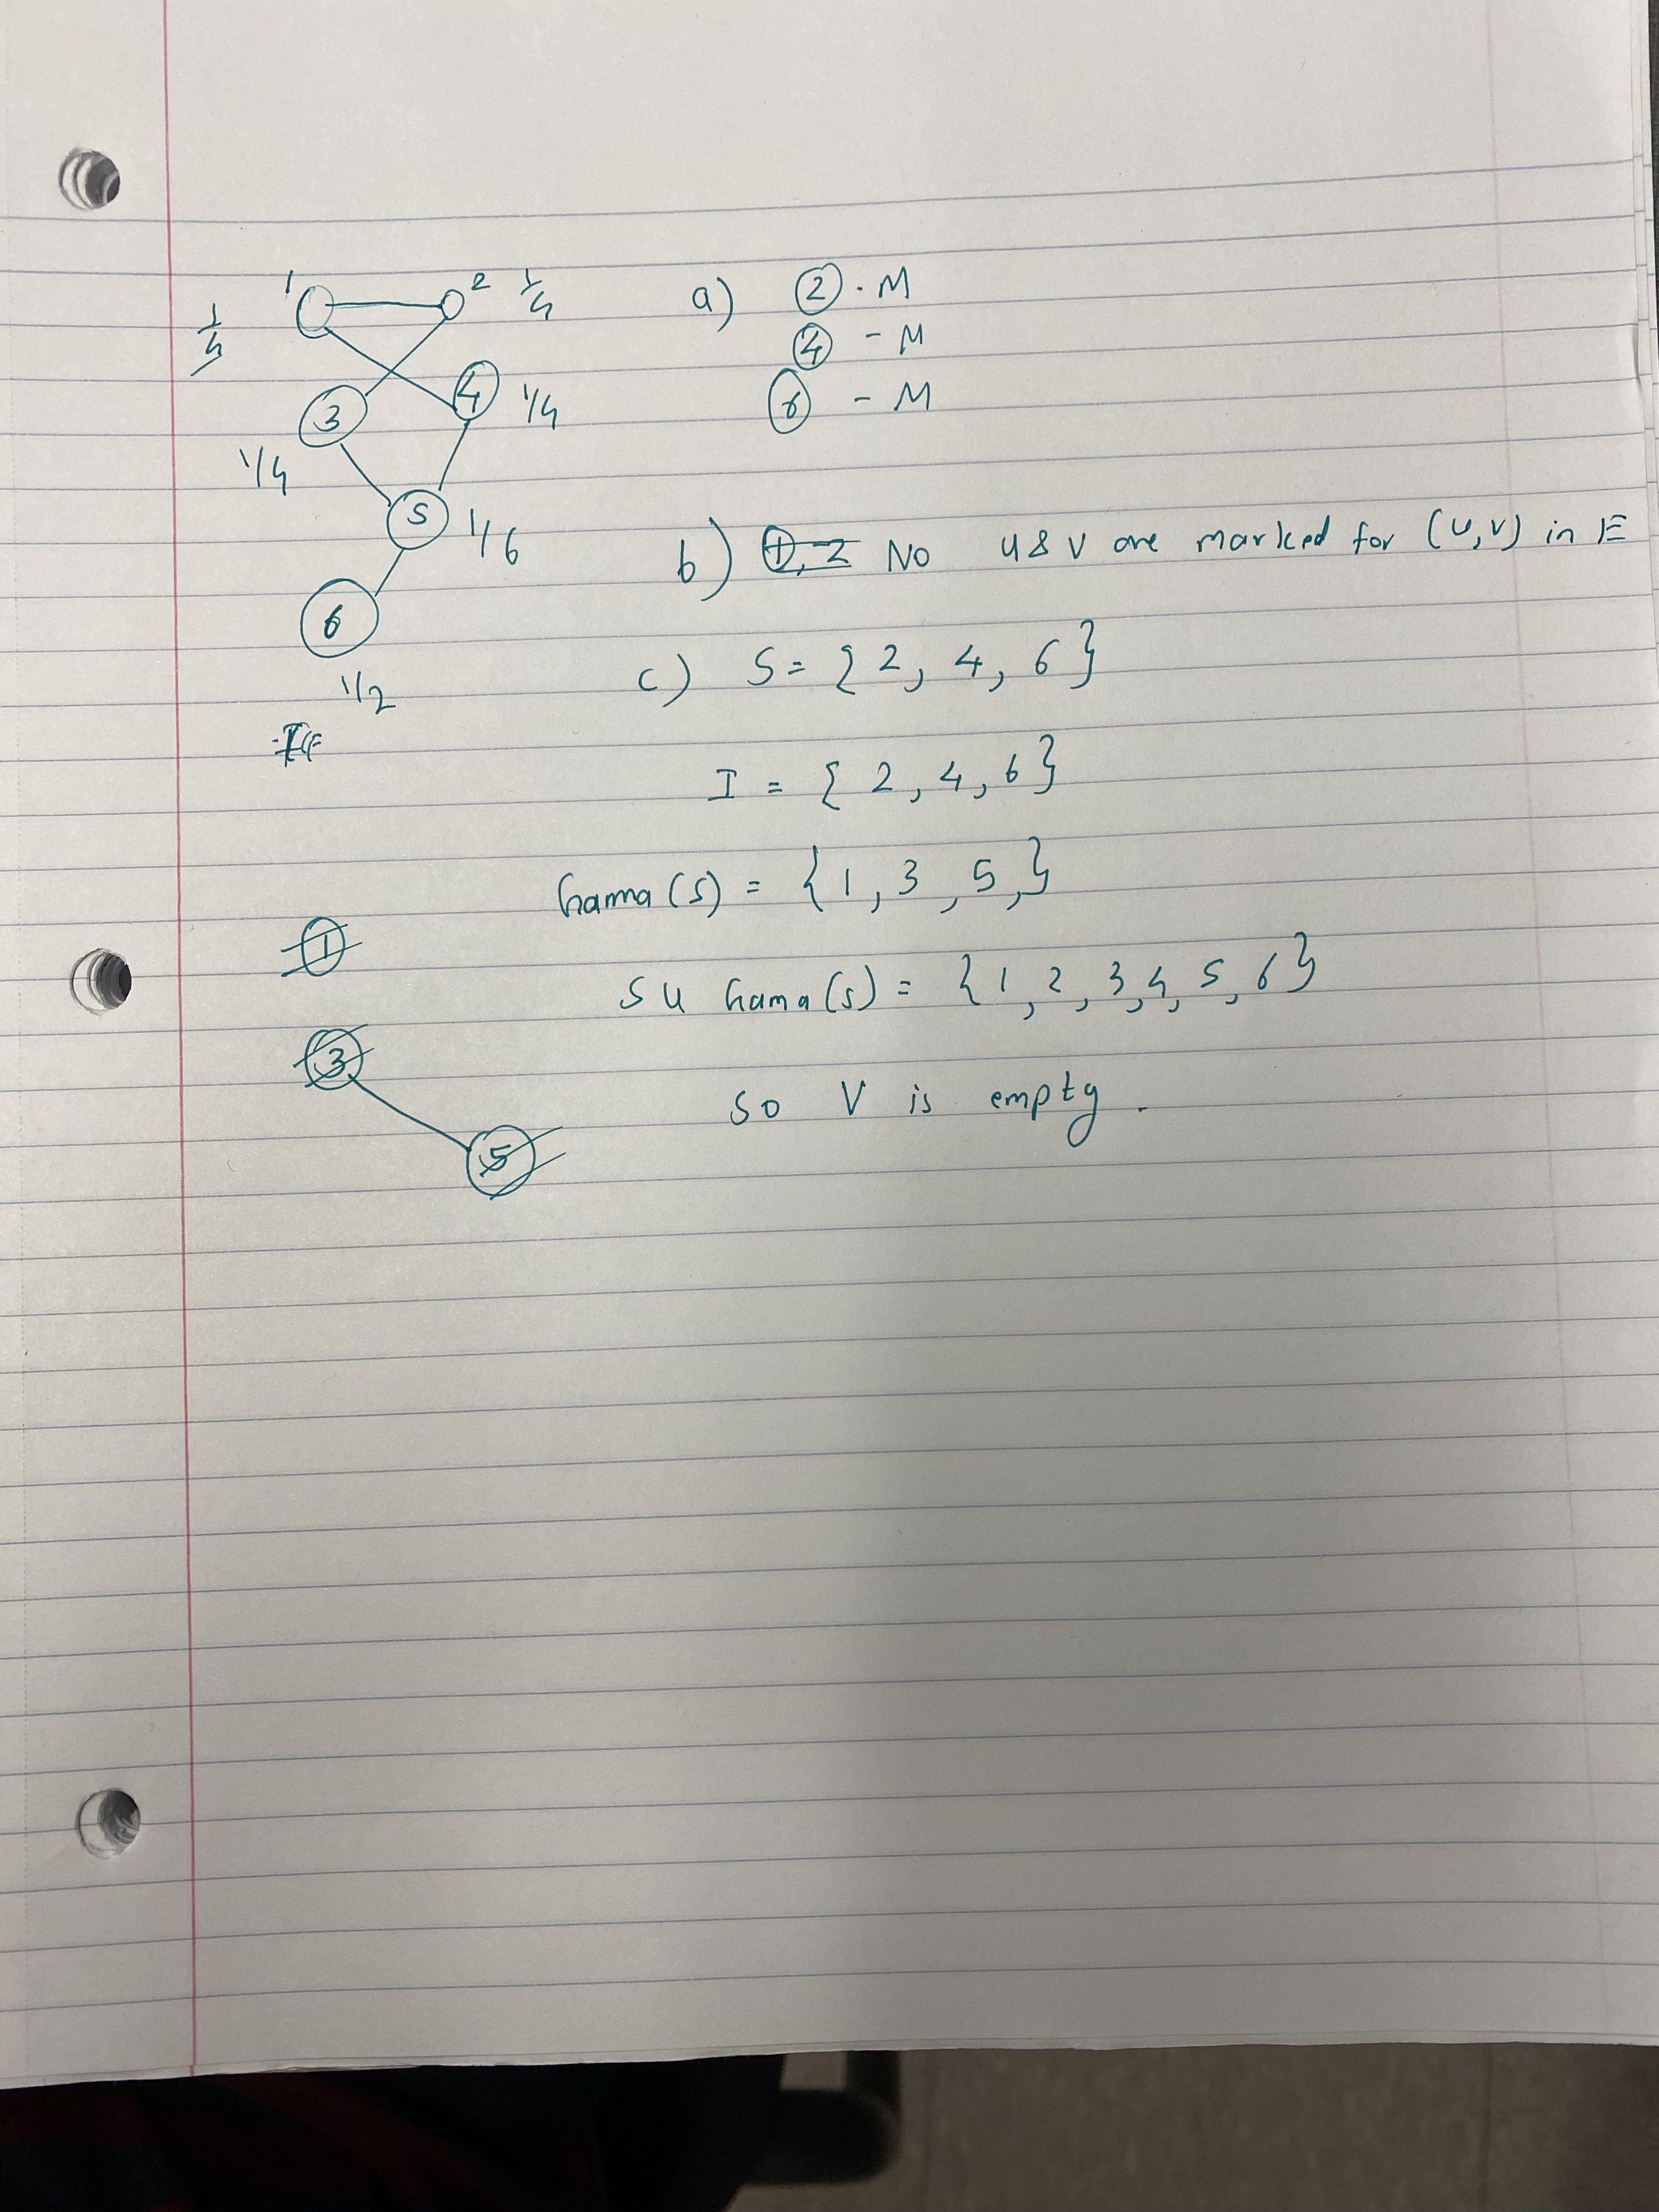 1 2 1/4
1/4
3 4 1/4
1/4
5 1/6
6
1/2
a) 2 . M
4 - M
6 - M
b) 1, 2 No u & v are marked for (u,v) in E
c) S = { 2, 4, 6 }
I = { 2, 4, 6 }
Gama (S) = { 1, 3, 5, }
1
S U Gama (S) = { 1, 2, 3, 4, 5, 6 }
3
5
So V is empty.